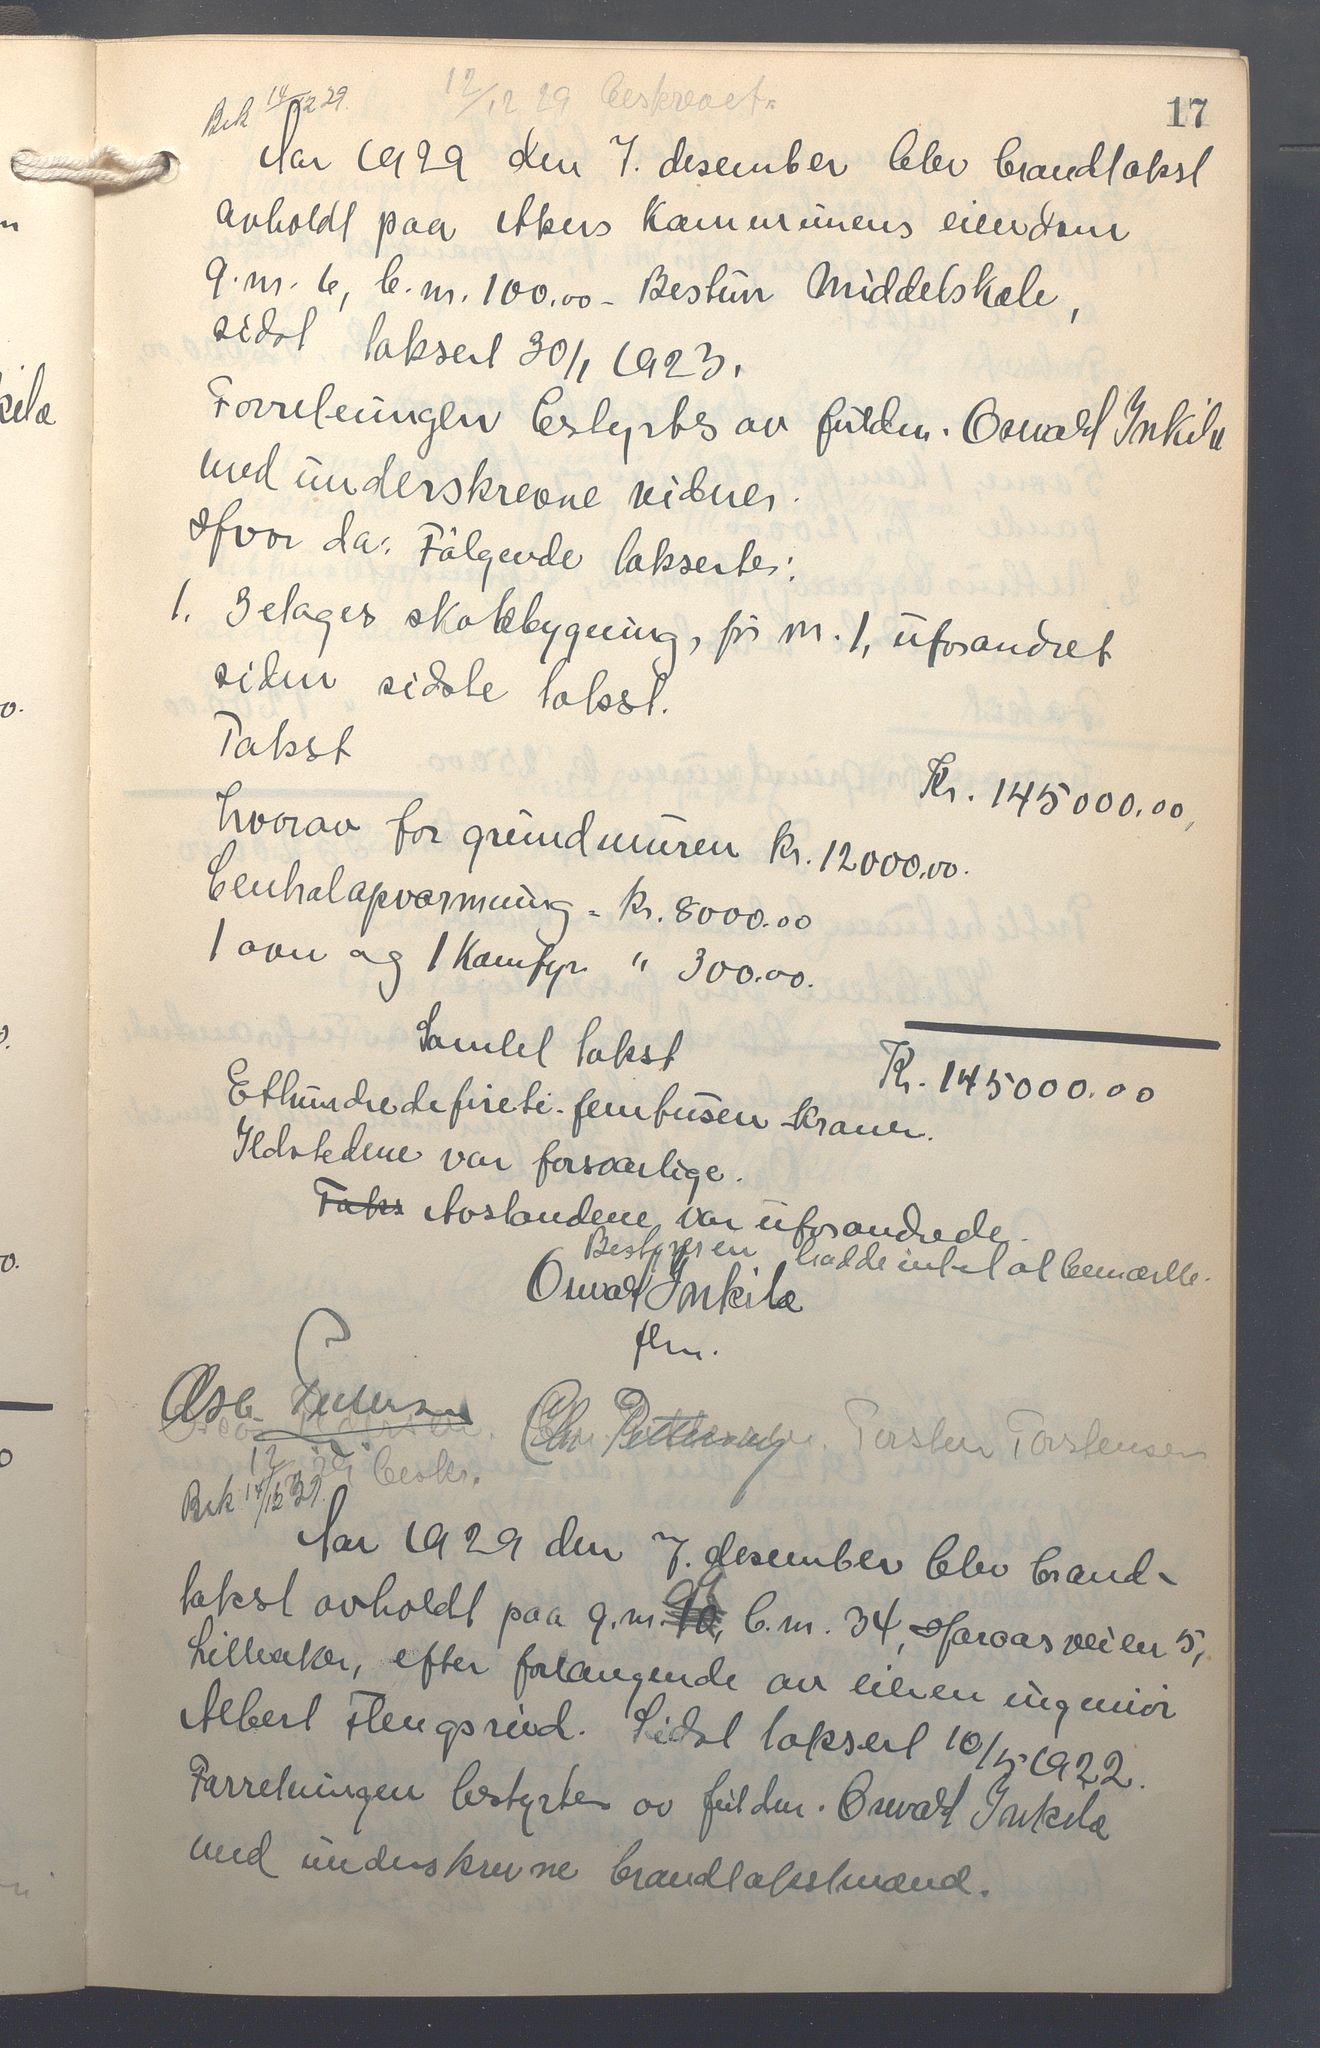 17
12/12 29 beskrevet.
Bek 14/12 29.
Aar 1929 den 7. desember blev brandtakst
avholdt paa Akers Kommunens eiendom
g.nr. 6, b.nr. 100.00 - Bestun Middelskole,
sidst taksert 30/1 1923.
Forretningen bestyrtes av fuldm. Osvald Inkila
med underskrevne vidner.
Hvor da: Følgende taksertes:
1. 3 etages skolebygning, før nr. 1, uforandret
siden sidste takst.
Takst
Kr. 145000.00,
hvorav for grundmuren kr. 12000.00.
Centralopvarmning - kr. 8000.00
1 ovn og 1 Komfyr " 300.00.
Samlet takst Kr. 145000.00
Ethundredefireti-femtusen Kroner.
Ildstedene var forsvarlige.
Taks Avstandene var uforandrede.
Bestyreren hadde intet at bemærke.
Osvald Inkila
flm.
Osc. Pedersen Chr. Pettersen Torsten Torstensen
12/12 29 beskr.
Bek 14/12 29.
Aar 1929 den 7. desember blev brand-
takst avholdt paa g.nr. b.nr. 34, Harvas veien 5,
Lilleaker, efter forlangende av eieren ingeniør
Albert Flengsrud. Sidst taksert 10/5 1922.
Forretningen bestyrtes av fuldm. Osvald Inkila
med underskrevne brandtakstmænd.